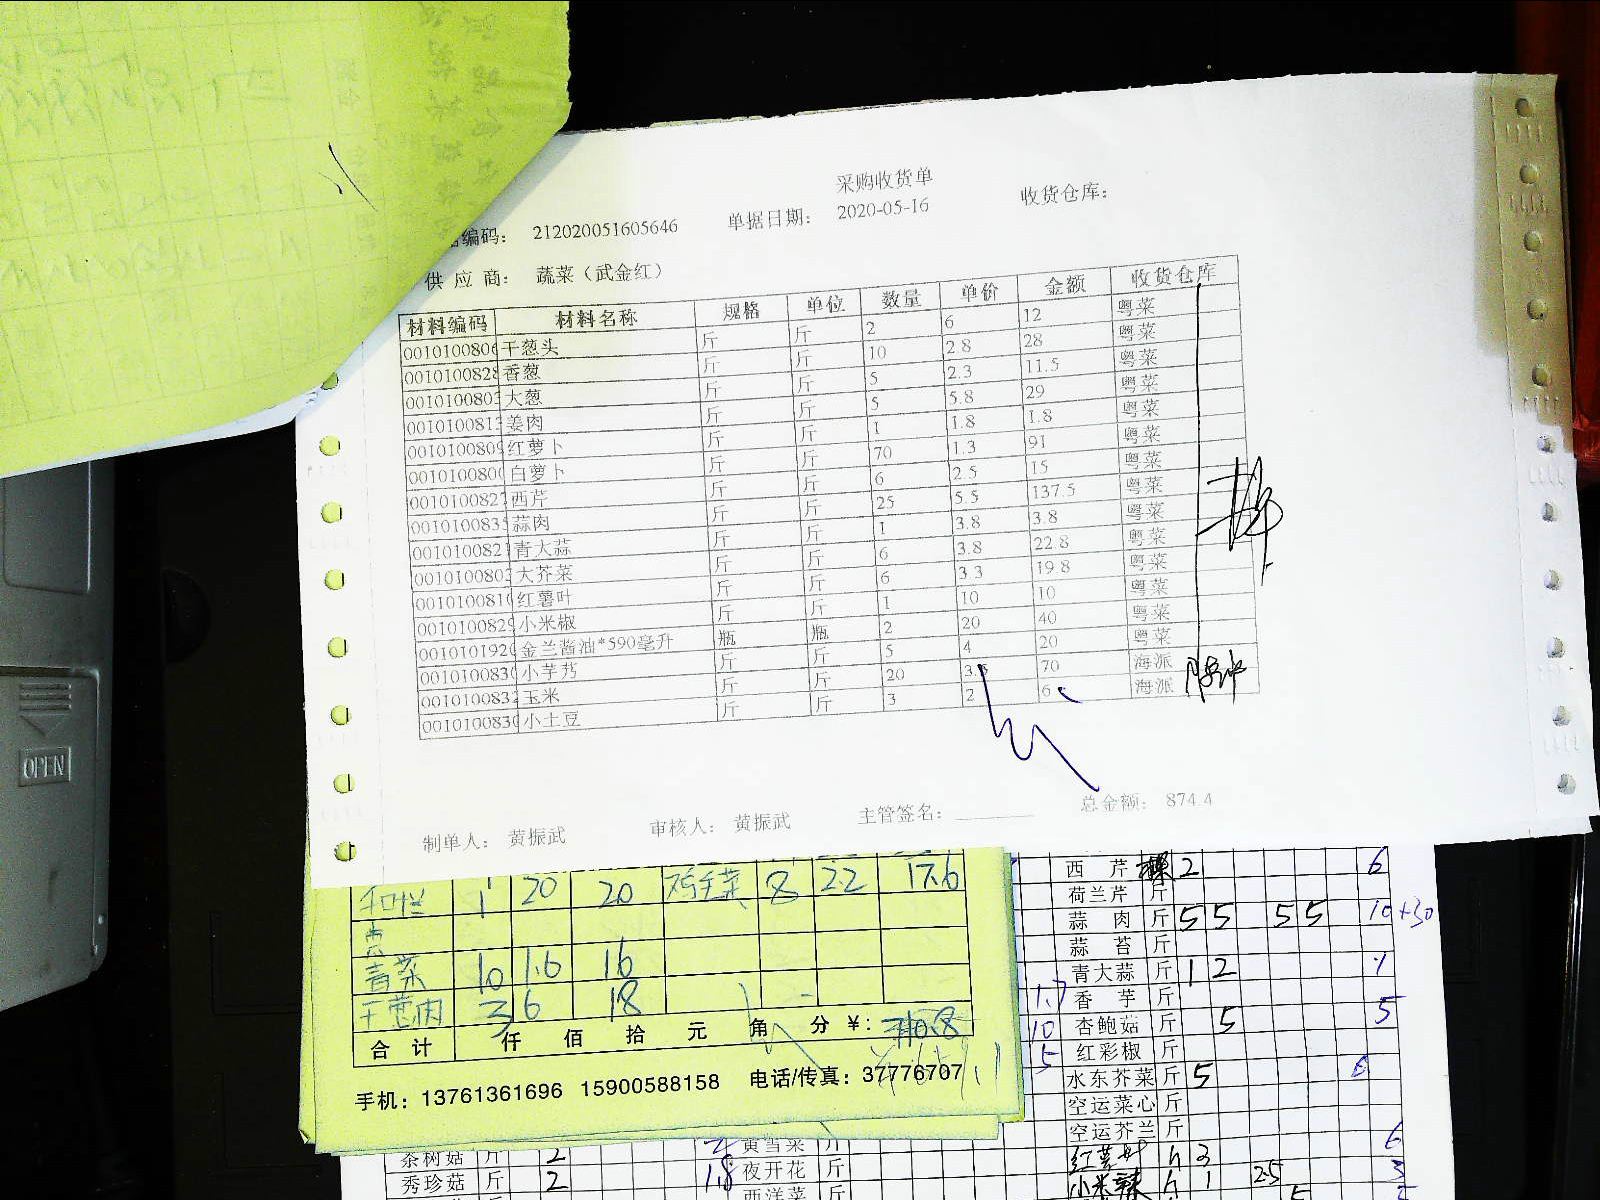 采购收货单
编码： 212020051605646 单据日期： 2020-05-16 收货仓库：
供 应 商： 蔬菜（武金红）
材料编码 材料名称 规格 单位 数量 单价 金额 收货仓库
001010080 干葱头 斤 斤 2 6 12 粤菜
001010082 香葱 斤 斤 10 2.8 28 粤菜
001010080 大葱 斤 斤 5 2.3 11.5 粤菜
001010081 姜肉 斤 斤 5 5.8 29 粤菜
001010080 红萝卜 斤 斤 1 1.8 1.8 粤菜
001010080 白萝卜 斤 斤 70 1.3 91 粤菜
001010082 西芹 斤 斤 6 2.5 15 粤菜
001010083 蒜肉 斤 斤 25 5.5 137.5 粤菜
001010082 青大蒜 斤 斤 1 3.8 3.8 粤菜
001010080 大芥菜 斤 斤 6 3.8 22.8 粤菜
001010081 红薯叶 斤 斤 6 3.3 19.8 粤菜
001010082 小米椒 斤 斤 1 10 10 粤菜
001010192 金兰酱油*590毫升 瓶 瓶 2 20 40 粤菜
001010083 小芋艿 斤 斤 5 4 20 粤菜
001010083 玉米 斤 斤 20 3.5 70 海派
001010083 小土豆 斤 斤 3 2 6 海派
制单人： 黄振武 审核人： 黄振武 主管签名： 总金额： 874.4
1 20 20 鸡毛菜 8 2.2 17.6
青菜 10 1.6 16
干葱肉 3 6 18
合 计 仟 佰 拾 元 角 分 ¥:
手机：13761361696 15900588158 电话/传真：37776707
西 芹 2 6
荷兰芹 斤
蒜 肉 斤 5 5 5 5 10+30
蒜 苔 斤
青大蒜 斤 1 2
1.7 香 芋 斤
10 杏鲍菇 斤 5 5
5 红彩椒 斤
水东芥菜 斤 5 6
空运菜心 斤
空运芥兰 斤
红薯叶 3
小米辣 1 25
茶树菇 斤 2 黄雪菜 斤
秀珍菇 斤 2 1.8 夜开花 斤
西洋菜 斤
OPEN